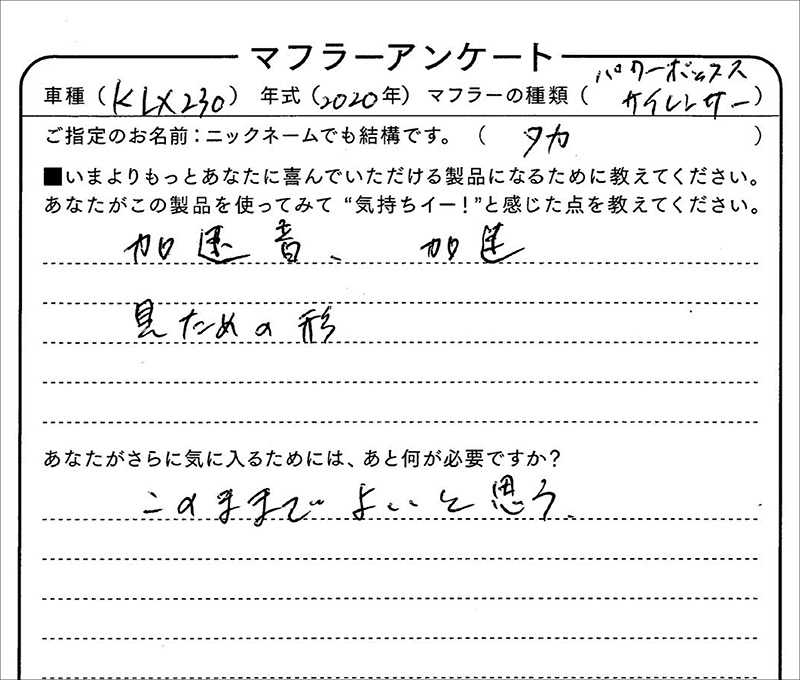 マフラーアンケート
車種（KLX230） 年式（2020年） マフラーの種類（パワーボックスサイレンサー）
ご指定のお名前：ニックネームでも結構です。（ タカ ）
■いまよりもっとあなたに喜んでいただける製品になるために教えてください。
あなたがこの製品を使ってみて “気持ちイー！”と感じた点を教えてください。
加速音、 加速
見ための形
あなたがさらに気に入るためには、あと何が必要ですか？
このままでよいと思う。